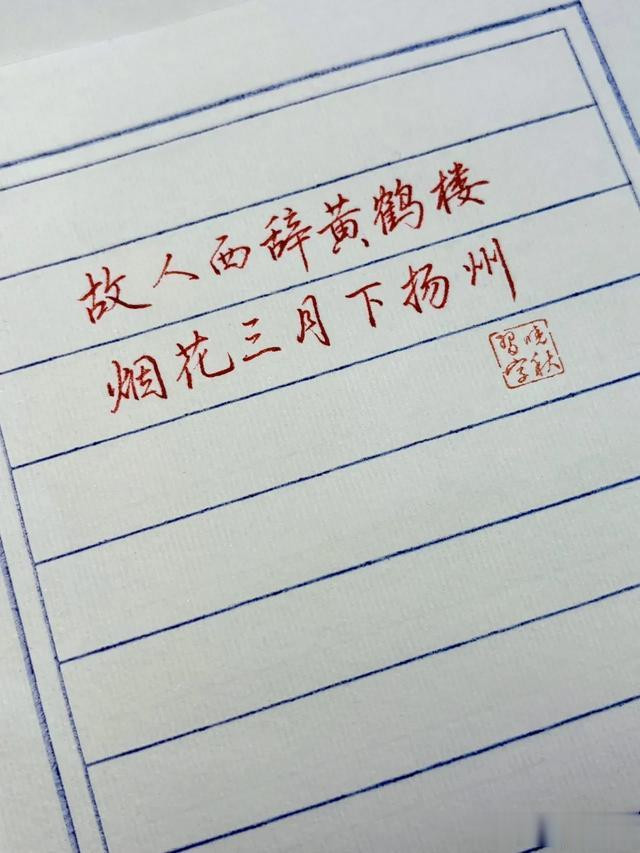 故人西辞黄鹤楼
烟花三月下扬州
晓秋
習字